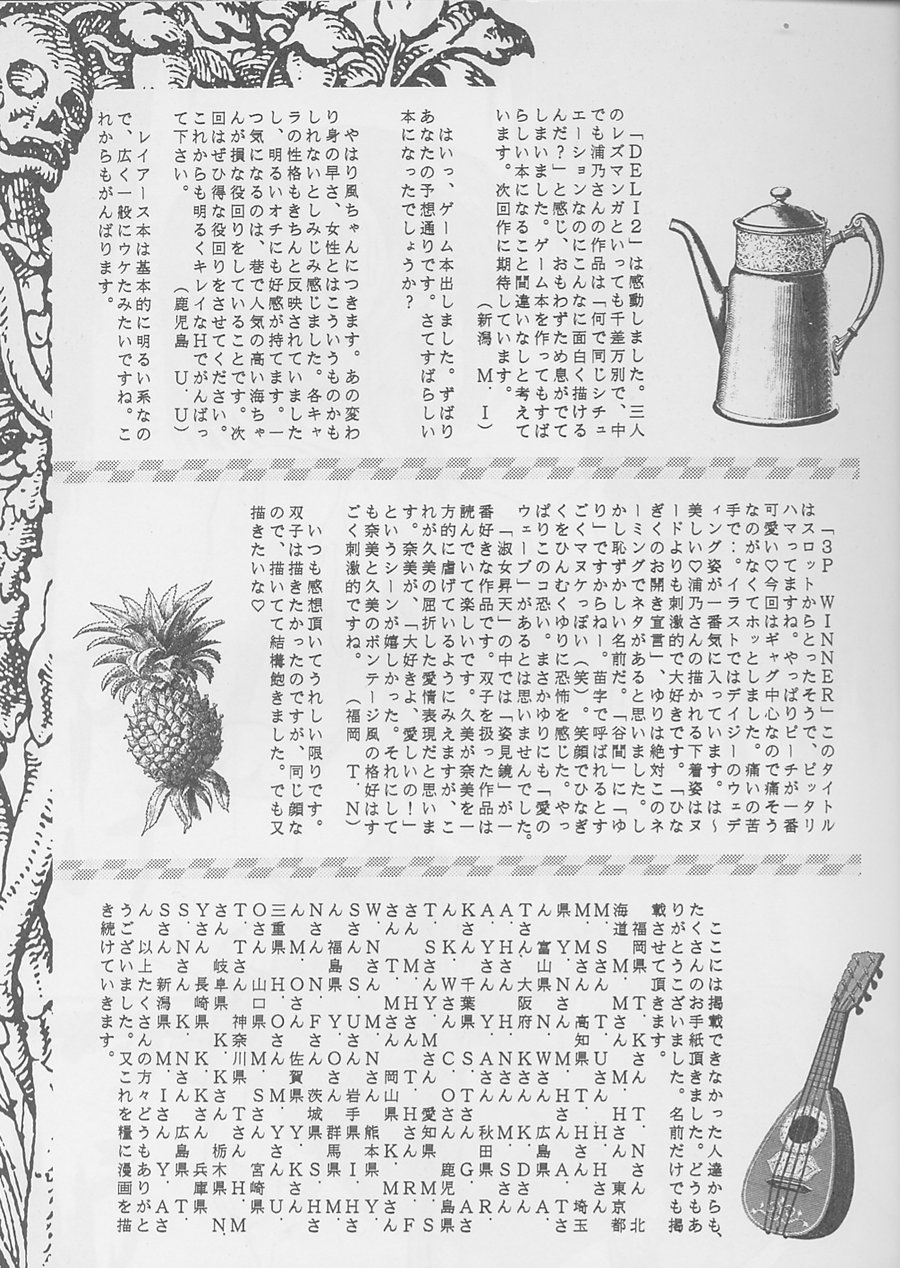 「DELI2」は感動しました。三人
のレズマンガといっても千差万別で、中
でも浦乃さんの作品は「何で同じシチュ
エーションなのにこんなに面白く描ける
んだ?」と感じ、おもわずため息がでて
しまいました。ゲーム本を作ってもすば
らしい本になること間違いなしと考えて
います。次回作に期待しています。
(新潟 M.I)
はいっ、ゲーム本出しました。ずばり
あなたの予想通りです。さてすばらしい
本になったでしょうか?
やはり風ちゃんにつきます。あの変わ
り身の早さ、女性とはこういうものかも
しれないとしみじみ感じました。各キャ
ラの性格もきちんと反映されていました
し、明るいオチにも好感が持てます。一
つ気になるのは、巷で人気の高い海ちゃ
んが損な役回りをしていることです。次
回はぜひ得な役回りをさせてください。
これからも明るくキレイなHでがんばっ
て下さい。 (鹿児島 U.U)
レイアース本は基本的に明るい系なの
で、広く一般にウケたみたいですね。こ
れからもがんばります。
「3P WINNER」このタイトル
はスロットからとったそうで、ピッタリ
ハマってますね。やっぱりピーチが一番
可愛い♡今回はギャグ中心なので痛そう
なのがなくてホッとしました。痛いの苦
手で‥。イラストではデイジーのウェデ
ィング姿が一番気に入っています。は~
美しい♡浦乃さんの描かれる下着姿はヌ
ードよりも刺激的で大好きです。「ひな
ぎくのお開き宣言」、ゆりは絶対このネ
ーミングでネタがあると思いました。し
かし恥ずかしい名前だ。「谷間」に「ゆ
り」ですからねー。苗字で呼ばれるとす
ごくマヌケっぽい(笑)。笑顔でひなぎ
くをひんむくゆりに恐怖を感じた。やっ
ぱりこのコ恐い。まさかゆりにも「愛の
ウェーブ」があるとは思いませんでした。
「淑女昇天」の中では「姿見鏡」が一
番好きな作品です。双子を扱った作品は
読んでいて楽しいです。久美が奈美を一
方的に虐げているようにみえますが、こ
れが久美の屈折した愛情表現だと思いま
す。奈美が、「大好きよ、愛しいの!」
というシーンが嬉しかった。それにして
も奈美と久美のボンテージ風の格好はす
ごく刺激的ですね。 (福岡 T.N)
いつも感想頂いてうれしい限りです。
双子は描きたかったのですが、同じ顔な
ので、描いてて結構飽きました。でも又
描きたいな♡
ここには掲載できなかった人達からも、
たくさんのお手紙頂きました。どうもあ
りがとうございました。名前だけでも掲
載させて頂きます。
福岡県 T.Kさん T.Nさん 北
海道 M.Mさん M.Hさん 東京都
M.Sさん T.Uさん H.Hさん
M.Mさん 高知県 T.Hさん 埼玉
県 Y.Nさん M.Hさん A.Tさ
ん 富山県 N.Wさん 広島県 A.
T.さん 大阪府 N.Kさん K.Dさん
A.Hさん H.Nさん T.Mさん
A.Yさん Y.Aさん 秋田県 R.
Kさん 千葉県 S.Tさん G.Aさ
ん K.Wさん C.Oさん 鹿児島県
T.Sさん Y.Mさん 愛知県 M.S
さん M.Hさん T.Hさん R.F
さん T.Mさん 岡山県 K.Mさん
W.Nさん M.Nさん 熊本県 Y.
Sさん S.Uさん 岩手県 I.Hさ
ん 福島県 Y.Oさん 群馬県 M.
Nさん N.Fさん 茨城県 S.Hさ
ん M.Oさん 佐賀県 Y.Kさん
三重県 H.Oさん M.Yさん U.
Oさん 山口県 M.Sさん 宮崎県
T.Tさん 神奈川県 T.さん H.M
さん 岐阜県 K.Kさん 栃木県 N.
Yさん 長崎県 K.Kさん 兵庫県
S.Nさん K.Nさん 広島県 T.
Sさん 新潟県 M.Iさん Y.Aさ
ん 以上たくさんの方々どうもありがと
うございました。又これを糧に漫画を描
き続けていきます。